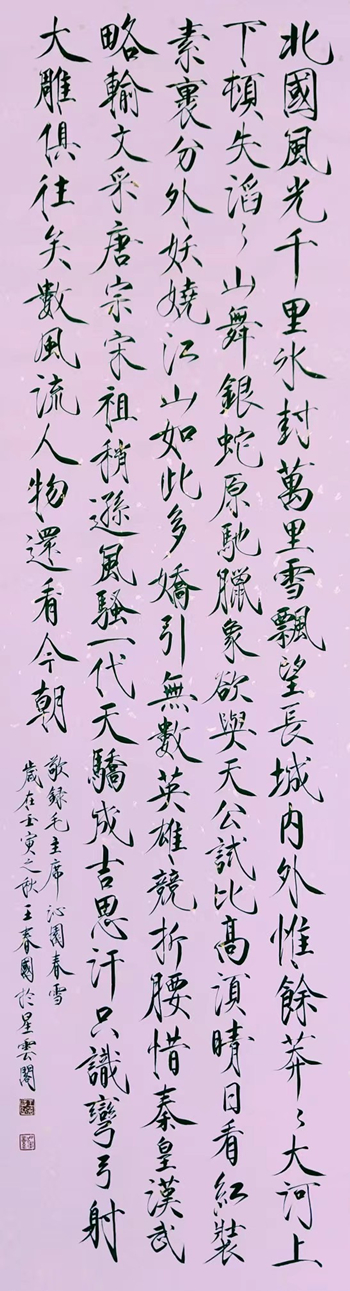 北國風光千里冰封萬里雪飄望長城內外惟餘莽〻大河上
下頓失滔〻山舞銀蛇原馳臘象欲與天公試比高須晴日看紅裝
素裹分外妖嬈江山如此多嬌引無數英雄競折腰惜秦皇漢武
略輸文采唐宗宋祖稍遜風騷一代天驕成吉思汗只識彎弓射
大雕俱往矣數風流人物還看今朝
敬録毛主席 沁園春雪
歲在壬寅之秋王春國於星雲閣